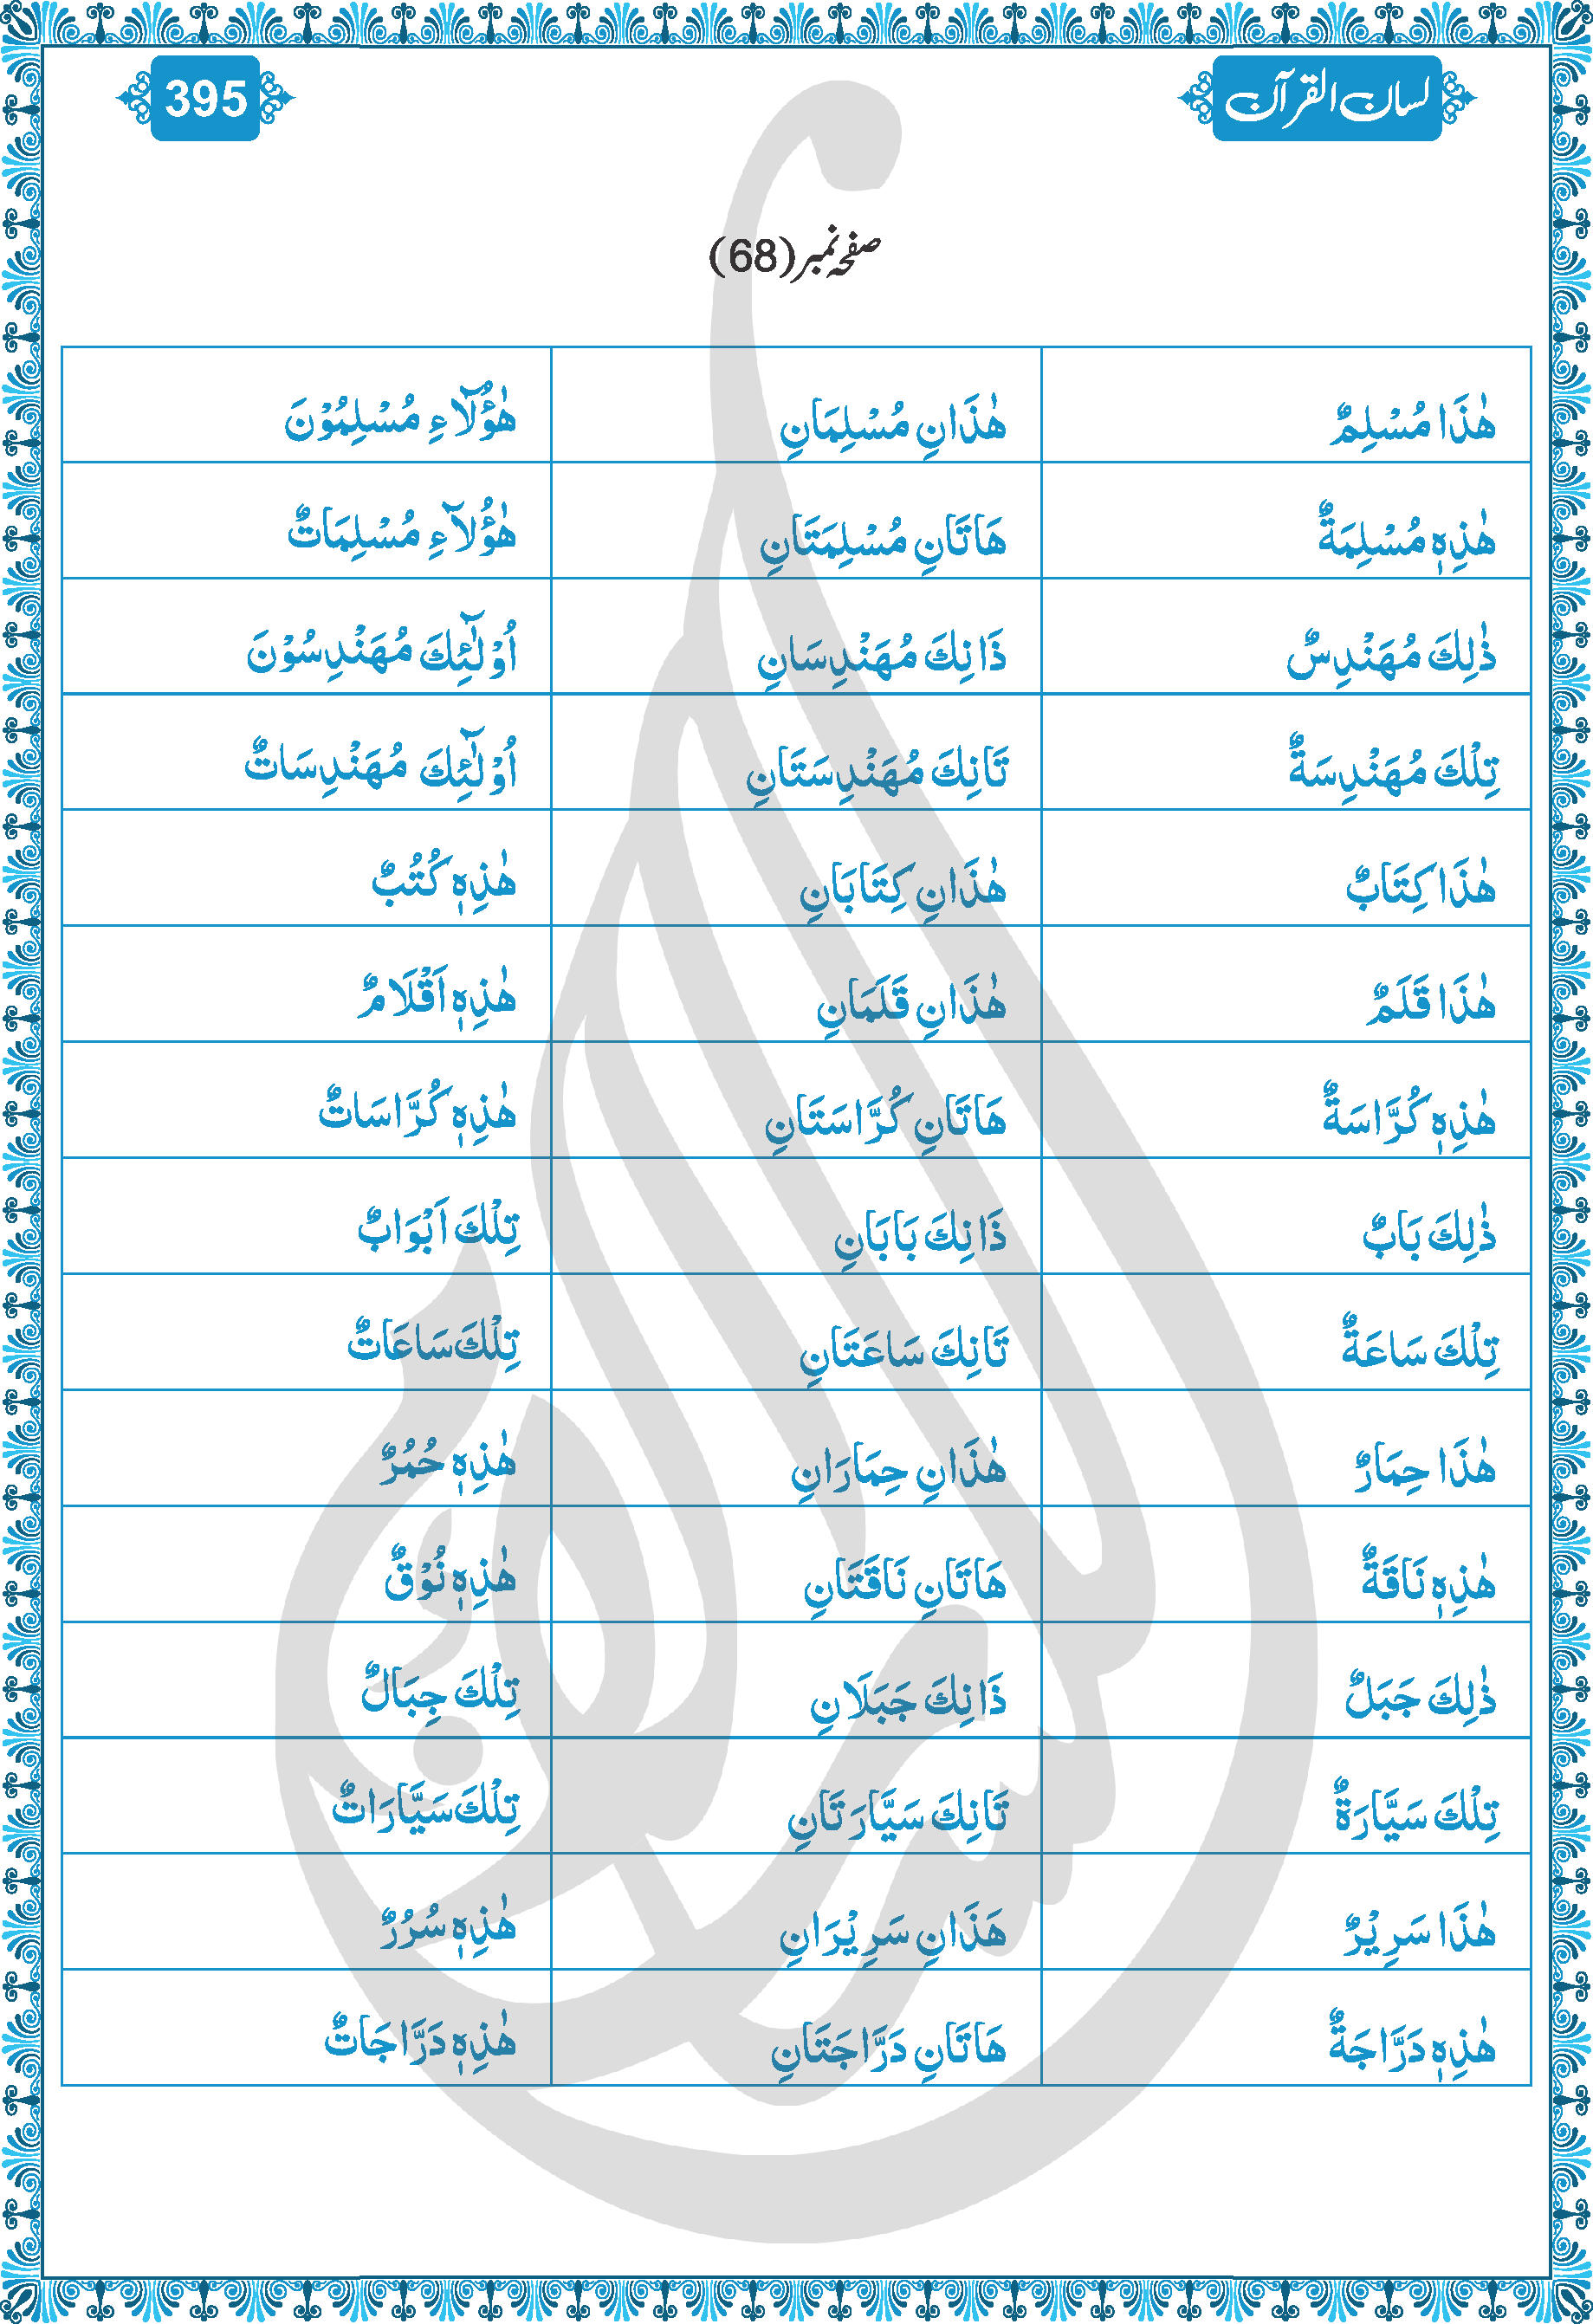 لسان القرآن
395
صفحہ نمبر (68)
هٰذَا مُسْلِمٌ هٰذَانِ مُسْلِمَانِ هٰؤُلَآءِ مُسْلِمُوْنَ
هٰذِهٖ مُسْلِمَةٌ هَاتَانِ مُسْلِمَتَانِ هٰؤُلَآءِ مُسْلِمَاتٌ
ذٰلِكَ مُهَنْدِسٌ ذَانِكَ مُهَنْدِسَانِ اُوْلٰٓئِكَ مُهَنْدِسُوْنَ
تِلْكَ مُهَنْدِسَةٌ تَانِكَ مُهَنْدِسَتَانِ اُوْلٰٓئِكَ مُهَنْدِسَاتٌ
هٰذَا كِتَابٌ هٰذَانِ كِتَابَانِ هٰذِهٖ كُتُبٌ
هٰذَا قَلَمٌ هٰذَانِ قَلَمَانِ هٰذِهٖ اَقْلَامٌ
هٰذِهٖ كُرَّاسَةٌ هَاتَانِ كُرَّاسَتَانِ هٰذِهٖ كُرَّاسَاتٌ
ذٰلِكَ بَابٌ ذَانِكَ بَابَانِ تِلْكَ اَبْوَابٌ
تِلْكَ سَاعَةٌ تَانِكَ سَاعَتَانِ تِلْكَ سَاعَاتٌ
هٰذَا حِمَارٌ هٰذَانِ حِمَارَانِ هٰذِهٖ حُمُرٌ
هٰذِهٖ نَاقَةٌ هَاتَانِ نَاقَتَانِ هٰذِهٖ نُوْقٌ
ذٰلِكَ جَبَلٌ ذَانِكَ جَبَلَانِ تِلْكَ جِبَالٌ
تِلْكَ سَيَّارَةٌ تَانِكَ سَيَّارَتَانِ تِلْكَ سَيَّارَاتٌ
هٰذَا سَرِيْرٌ هَذَانِ سَرِيْرَانِ هٰذِهٖ سُرُرٌ
هٰذِهٖ دَرَّاجَةٌ هَاتَانِ دَرَّاجَتَانِ هٰذِهٖ دَرَّاجَاتٌ